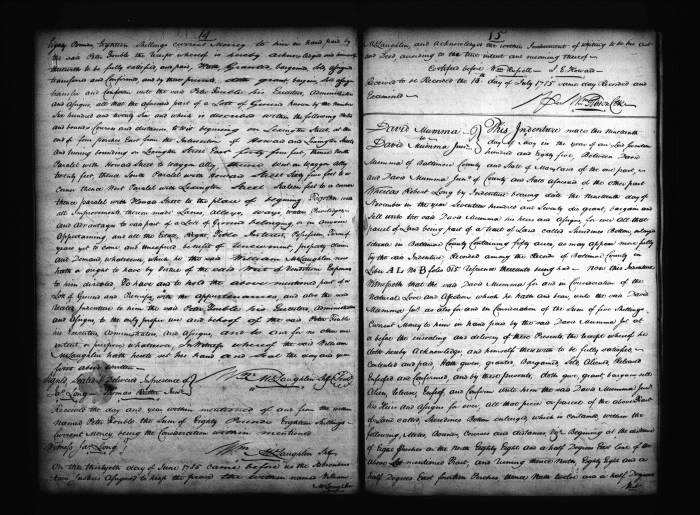 14
Eighty Pounds, Eighteen Shillings current Money to him in hand paid by
the said Peter Trouble the Receipt whereof is hereby acknowledged and himself
therewith to be fully satisfied, and paid, Hath Granted, bargained, Sold, assigned
transferred and Confirmed, and by these presents, doth grant, bargain, Sell, assign
transfer and Confirm unto the said Peter Trouble his Executors, Administrators
and Assigns, all that the aforesaid part of a Lott of Ground known by the number
Six hundred and twenty Six and which is described within the following Metes
and bounds Courses and distances, to wit beginning on Lexington Street, at the
end of four perches East from the Intersection of Howard and Lexington Streets
and runing bounding on Lexington Street East forty feet, thence North
Parallel with Howard Street to Wagon alley, thence on Wagon alley
twenty feet, thence South Parallel with Howard Street Sixty five feet to a
Corner thence West Parallel with Lexington Street feet to a corner
thence parallel with Howard Street to the place of begining. Together with
all Improvements thereon made Lanes, alleys, ways, water, Priviledges
and Advantages to said part of a Lott of Ground belonging, or in any wise
Appertaining, and all the Estate, Right, Title, Interest, Possession, Term of
years yet to come and unexpired benefit of Encumrent, property claim
and Demand whatsoever, which he the said William McLaughlin now
hath or ought to have by Virtue of the said Writ of Venditioni Exponas
to him directed. To have and to hold the above mentioned part of a
Lott of Ground and Premises, with the appurtenances, and also the said
to him the said Peter Trouble his Executors, Administrators
and Assigns, to the only proper use and behoof of the said Peter Trouble
his Executors, Administrators, and Assigns, and to and for no other use
intent or purpose whatsoever, In Witness whereof the said William
McLaughlin hath hereto set his hand and Seal the day and year
first above written
Signed, Sealed & Delivered In presence of Wm McLaughlin Shff Seal
Ja. Long Thomas
Received the day and year within mentioned of and from the within
named Peter Trouble the Sum of Eighty Pounds Eighteen Shillings
Current Money being the Consideration within mentioned
Witness Ja. Long Wm McLaughlin Shff
On this thirteenth day of June 1785 came before us the Subscribers
two Justices Assigned to keep the peace the within named William
McLaughlin
15
McLaughlin, and Acknowledged the within Instrument of Writing to be his act
and Deed according to the true intent and meaning thereof
Certified before Wm Russell J. E. Howard
Received to be Recorded the 13th day of July 1785 same day Recorded and
Examined
David Mumma
To
David Mumma Junr
This Indenture made this Nineteenth
day of May in the year of our Lord Seventeen
hundred and Eighty five, Between David
Mumma of Baltimore County and State of Maryland of the one part, and
and David Mumma Junr of County and State aforesaid of the other part
Whereas Robert Long by Indenture bearing date the Nineteenth day of
November in the year Seventeen hundred and Seventy did grant, bargain and
Sell unto the said David Mumma his heirs and Assigns for ever all that
parcel of Land being part of a tract of Land called Shredines Bottom enlarged
situate in Baltimore County Containing fifty acres, as may appear more fully
by the said Indenture Recorded among the Records of Baltimore County in
Liber A L No B folio 615 Reference thereunto being had Now this Indenture
Witnesseth that the said David Mumma for and in Consideration of the
Natural Love and Affection which he hath and bears, unto the said David
Mumma Junr as also for and in Consideration of the Sum of five Shillings
Current Money to him in hand paid by the said David Mumma Junr at
or before the ensealing and delivery of these Presents, the receipt whereof he
doth hereby Acknowledge and himself therewith to be fully satisfied,
Contented and paid Hath given, granted, bargained, Sold, Aliened, Released
Enfeoffed and Confirmed, and by these presents, doth give, grant, bargain, sell
Alien, Release, Enfeoff, and Confirm unto him the said David Mumma Junr
his Heirs and Assigns for ever, all that piece or parcel of the above Tract
of Land called Shredines Bottom enlarged, which is contained within the
following, Metes, Bounds, Courses and distances, Vizt Beginning at the distance
of Eight Perches in the North Eighty Eight and a half Degrees East line of the
above mentioned Tract, and runing thence North, Eighty Eight and a
half Degrees East fourteen Perches, thence North twelve and a half Degrees